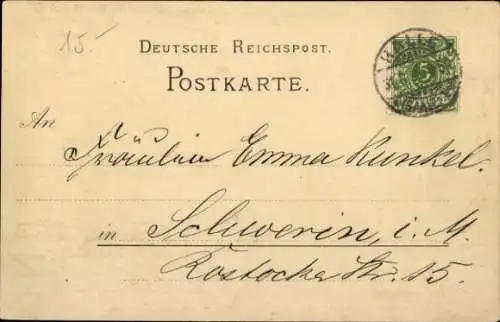 15.-
DEUTSCHE REICHSPOST.
POSTKARTE.
HALLE
5
An
Fräulein Emma Kunkel.
in Schwerin, i. M.
Rostocker Str. 15.